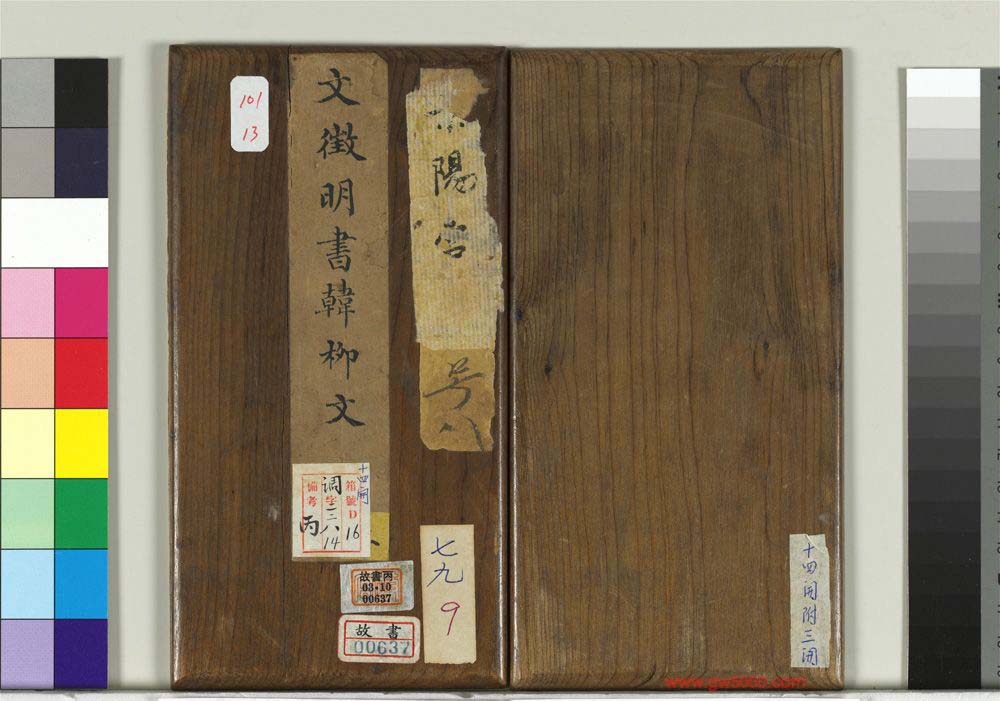 101
13
文徵明書韓柳文
陽宮
号八
十四開
箱號D16
调字二八14
備考丙
故書丙
03•10
00637
故書
00637
七九
9
十四開附三開
www.gw5000.com